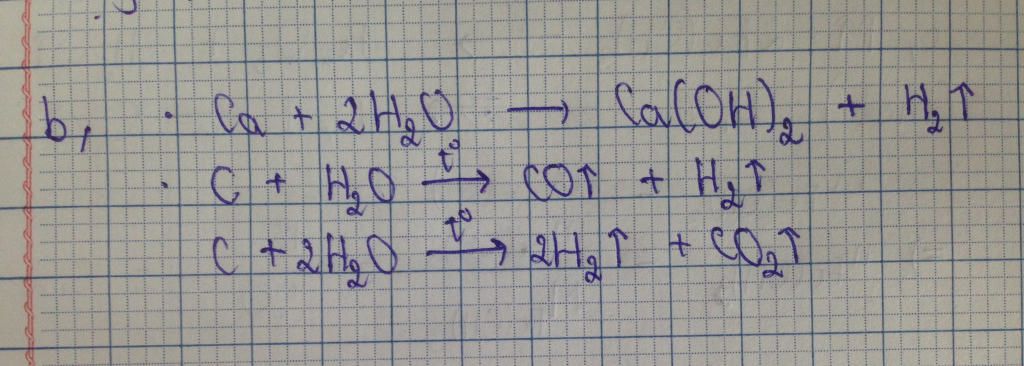 b, · Ca + 2H₂O → Ca(OH)₂ + H₂↑
· C + H₂O →(t°) CO↑ + H₂↑
C + 2H₂O →(t°) 2H₂↑ + CO₂↑